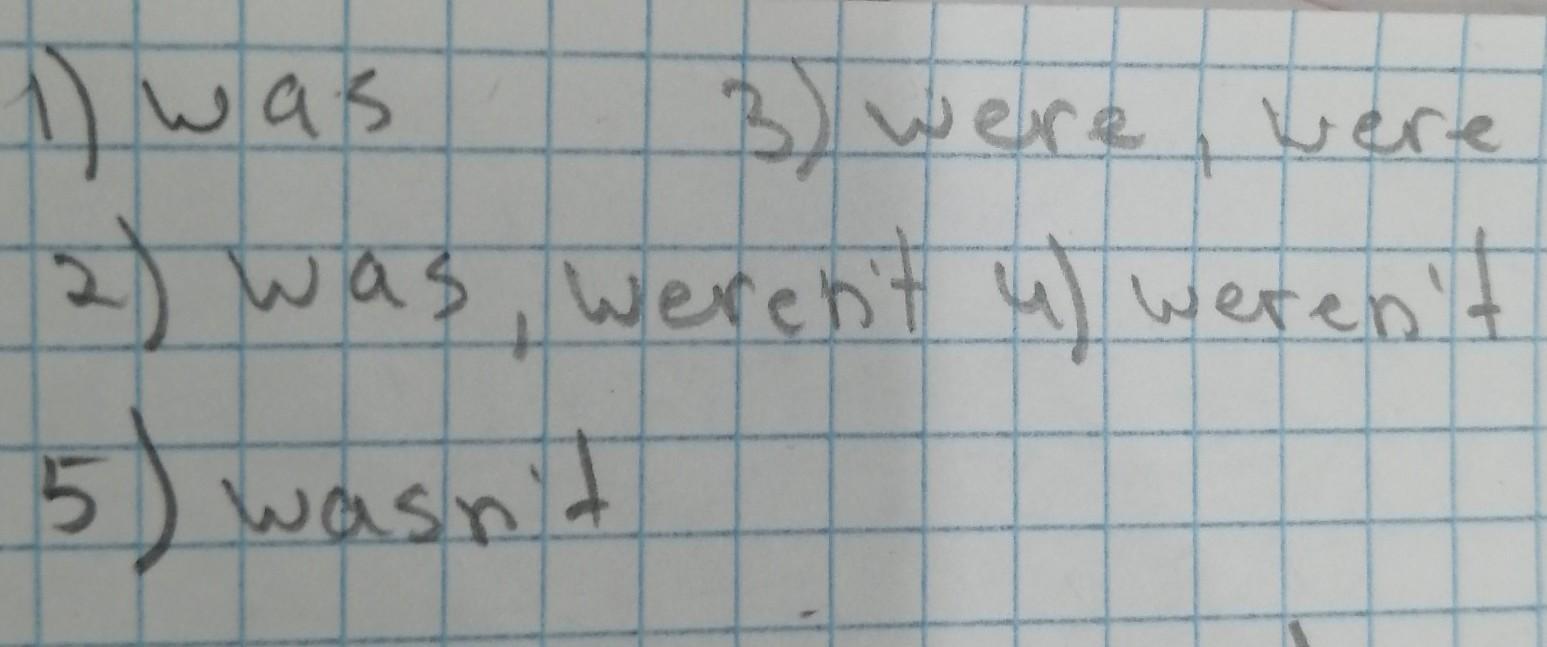 1) was 3) were, were
2) was, weren't 4) weren't
5) wasn't